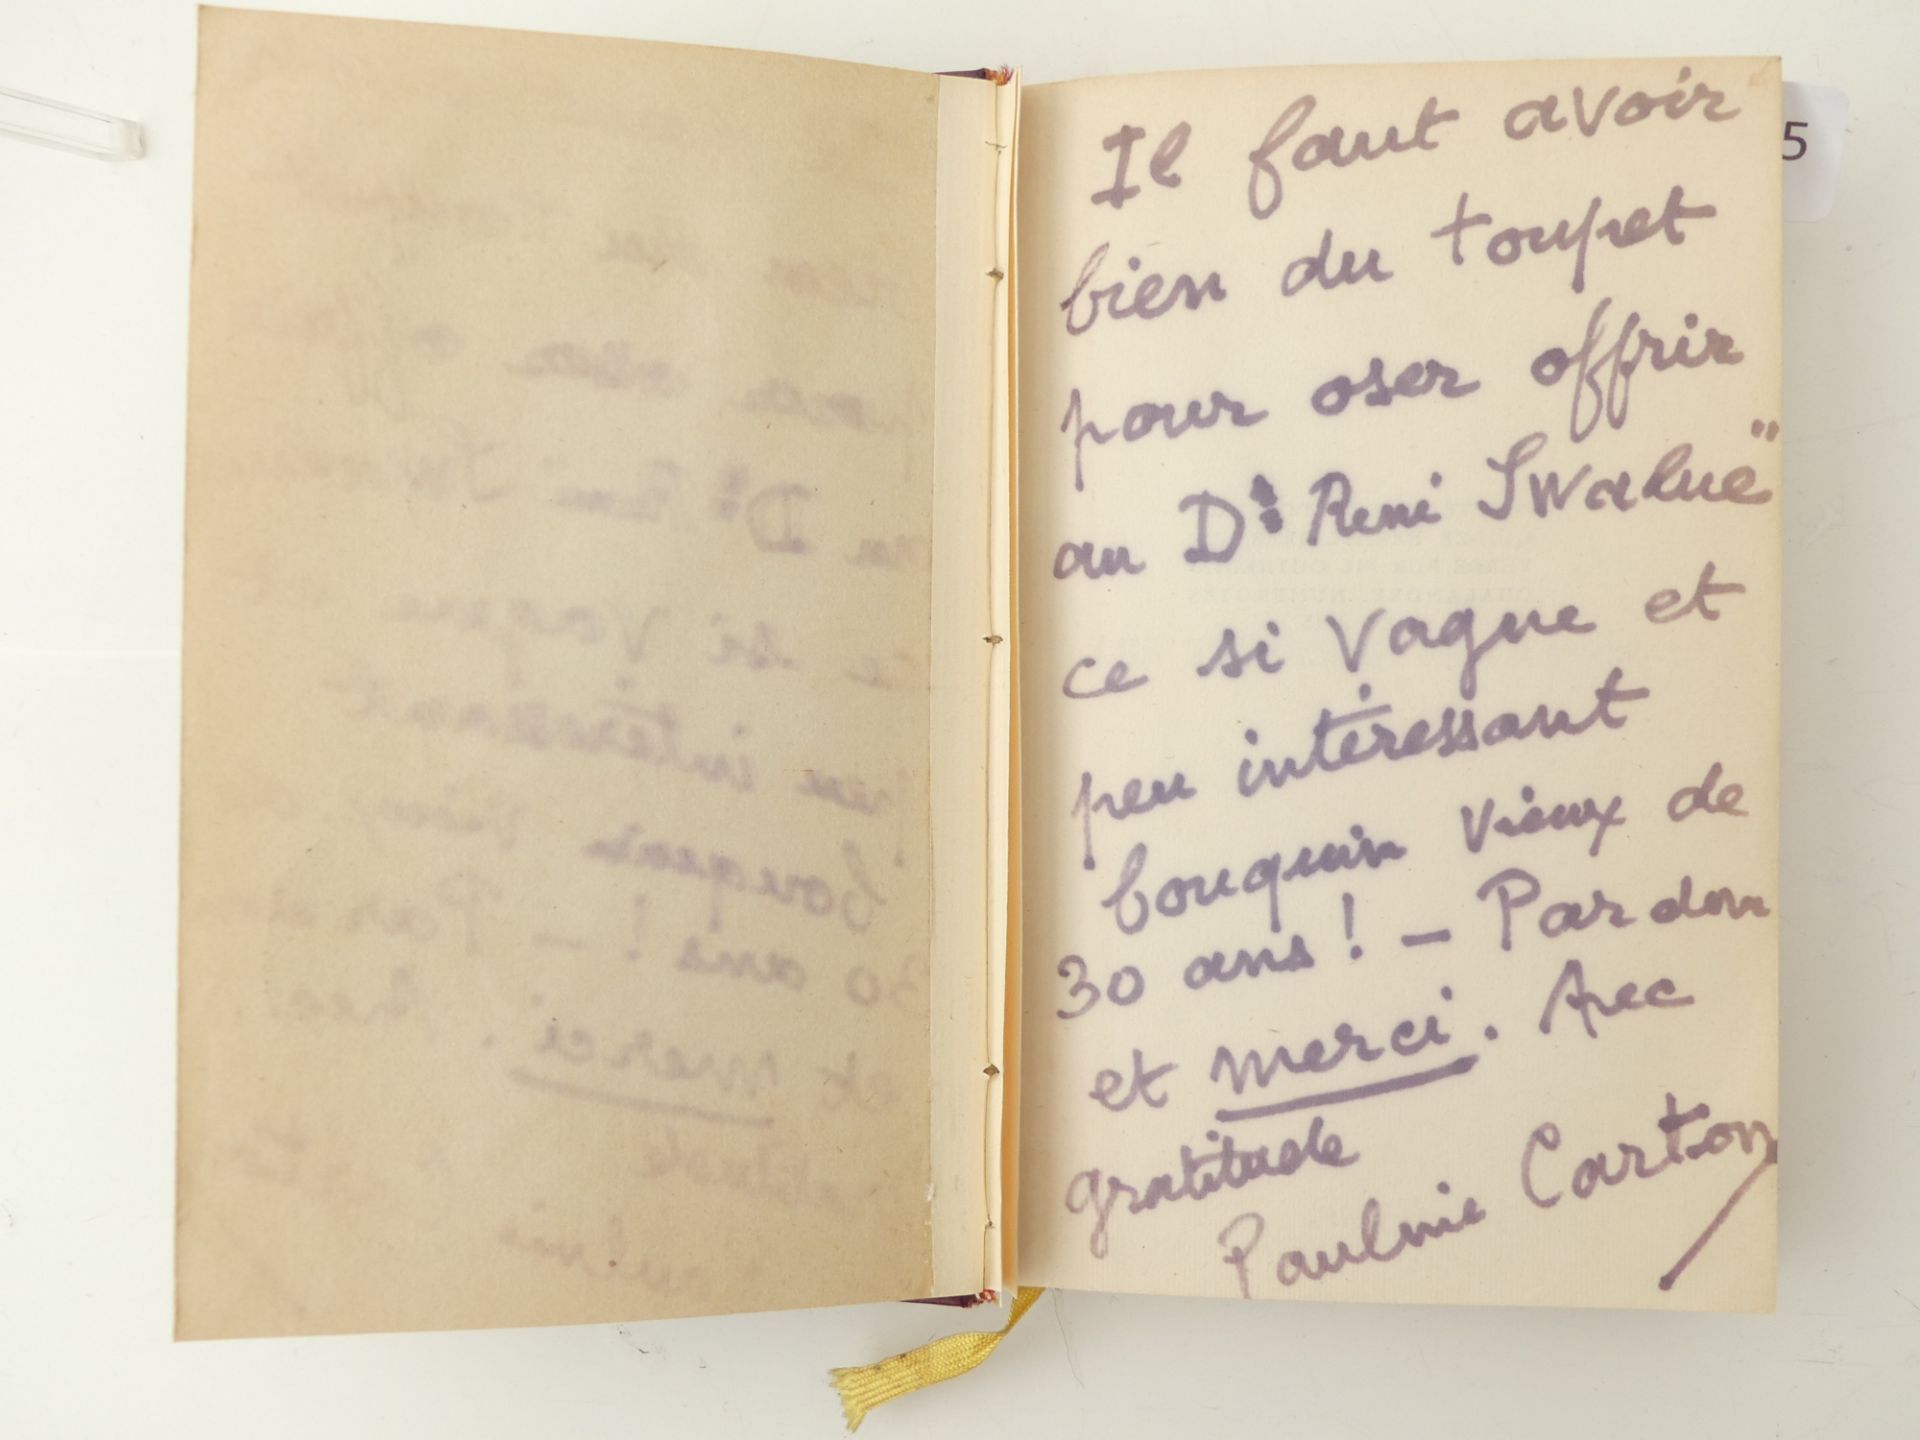 Il faut avoir
bien du toupet
pour oser offrir
au Dr René Swaluë
ce si vague et
peu intéressant
bouquin vieux de
30 ans ! - Pardon
et merci. Avec
gratitude
Pauline Carton
5